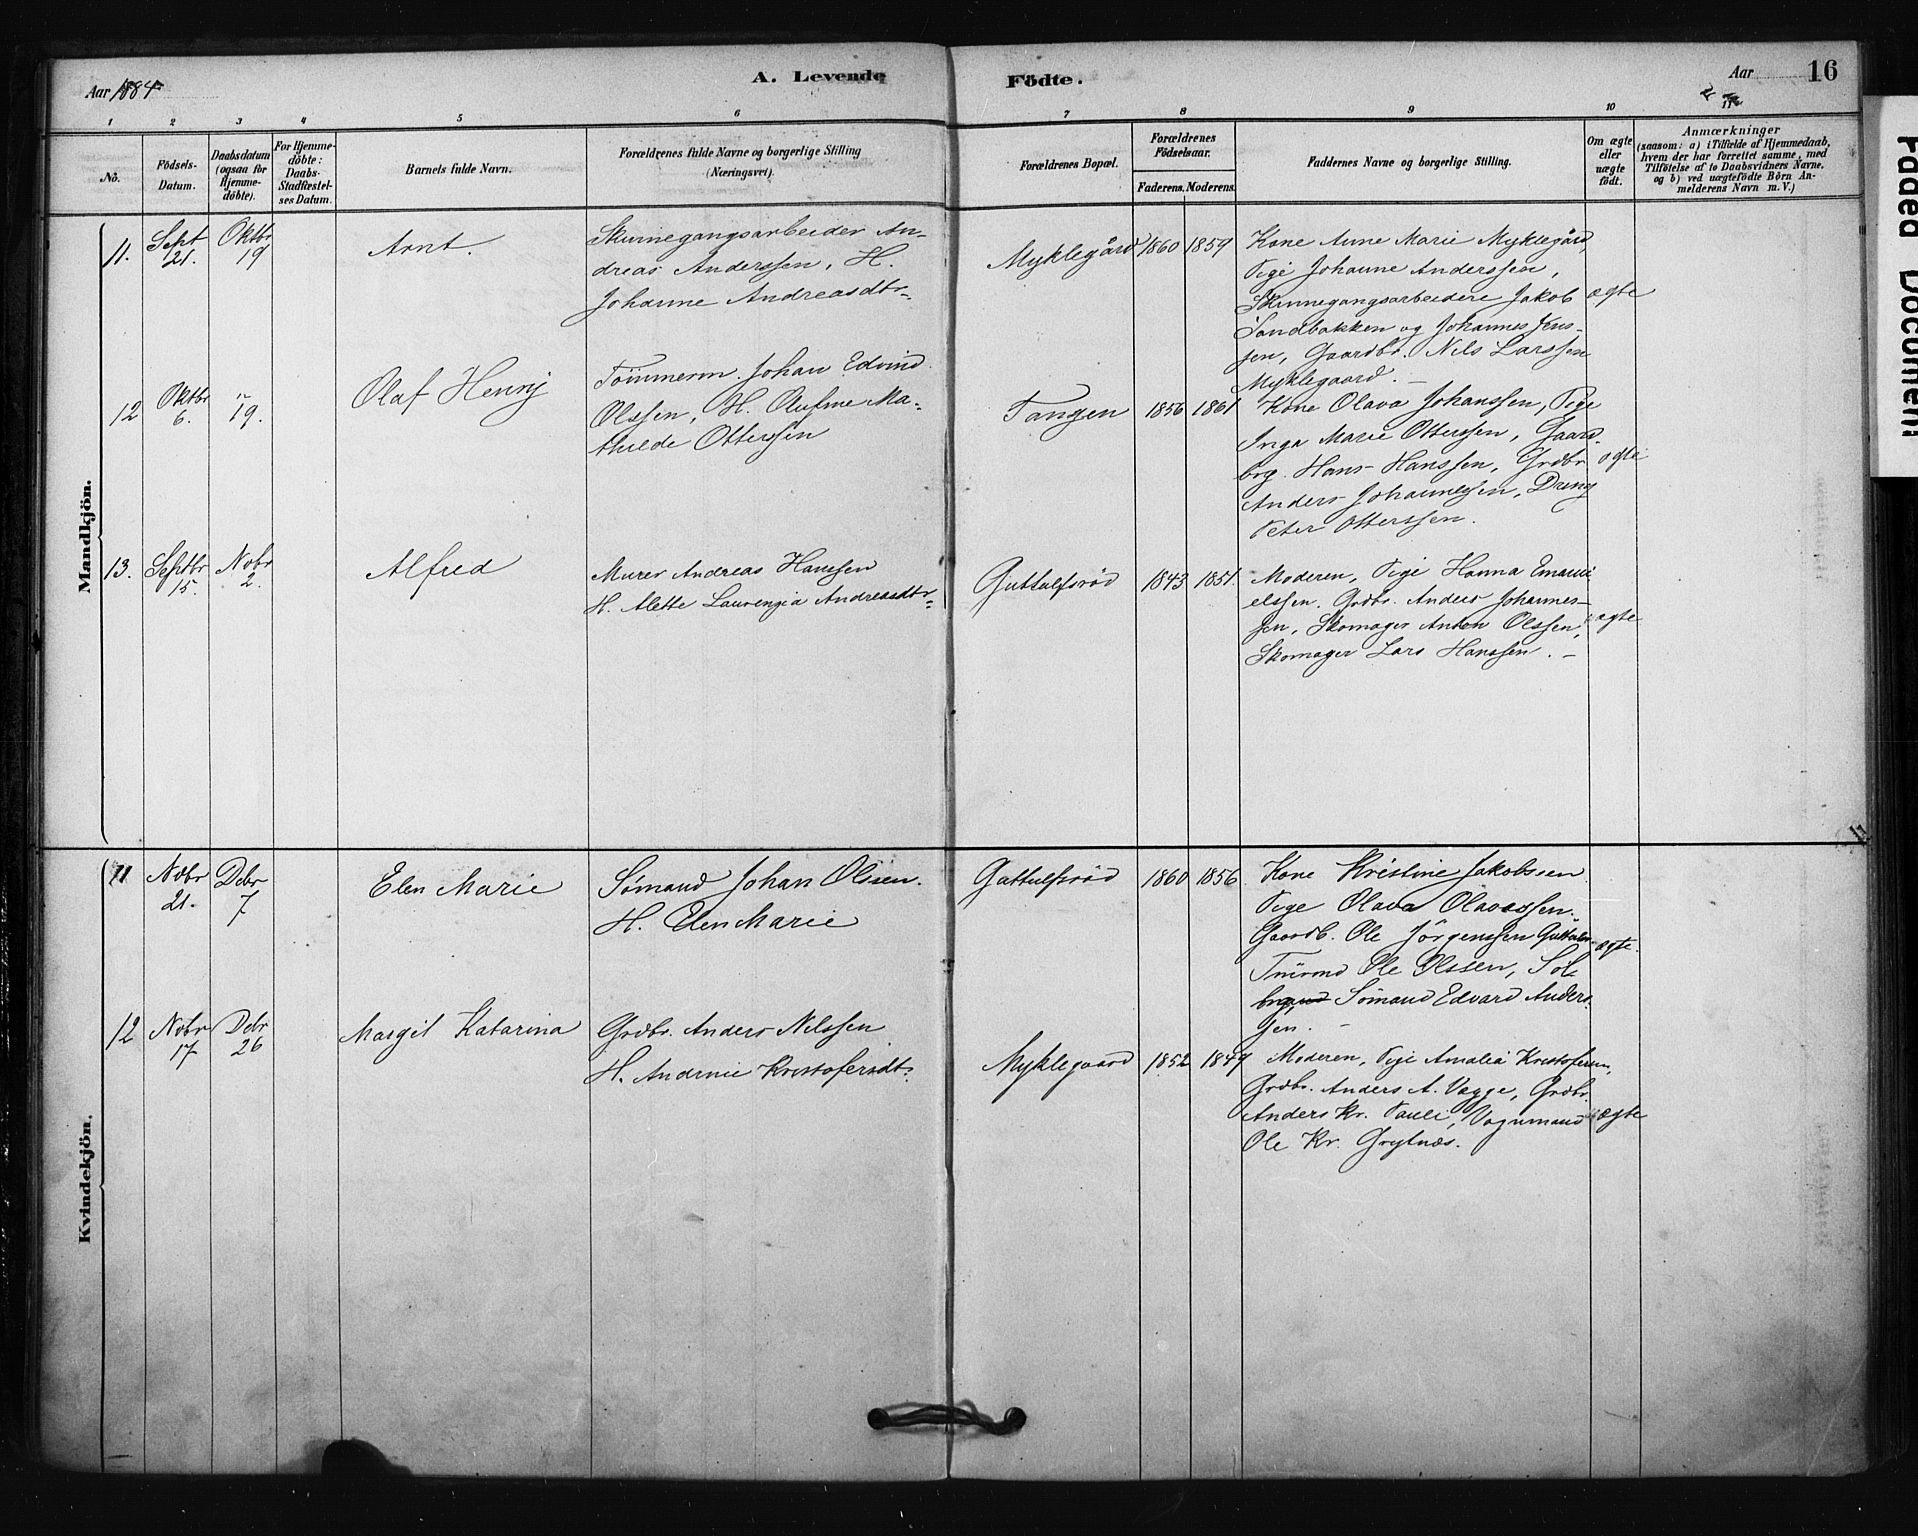 Aar 1884
A. Levende
Födte.
Aar
16
1 2 3 4 5 6 7 8 9 10 11
No.
Födsels-
Datum.
Daabsdatum
(ogsaa for
Hjemme-
döbte).
For Hjemme-
döbte:
Daabs-
Stadfæstel-
ses Datum.
Barnets fulde Navn.
Forældrenes fulde Navne og borgerlige Stilling
(Næringsvei).
Forældrenes Bopæl.
Forældrenes
Födselsaar.
Faderens. Moderens.
Faddernes Navne og borgerlige Stilling.
Om ægte
eller
uægte
födt.
Anmærkninger
(saasom: a) i Tilfælde af Hjemmedaab,
hvem der har forrettet samme, med
Tilföielse af to Daabsvidners Navne.
og b) ved uægtefödte Börn An-
melderens Navn m. V.)
Mandkjön.
11.
Sept
21.
Oktbr
19
Arnt.
Skurnegangsarbeider An-
dreas Anderssen, H.
Johanne Andreasdtr.
Myklegård
1860
1859
Kone Anne Marie Myklegård,
Pige Johanne Anderssen,
Skurnegangsarbeidere Jakob
Sandbakken og Johannes Jens-
sen, Gaardbr. Nils Larssen
Myklegaard. –
ægte
12
Oktbr
6.
"
19.
Olaf Henrij
Tömmerm. Johan Edvind
Olssen, H. Olufine Ma-
thilde Otterssen
Tangen
1856
1861
Kone Olava Johanssen, Pige
Inga Marie Otterssen, Gaard-
brg. Hans Hanssen, Grdbr
Anders Johannessen, Dreng
Peter Otterssen.
ægte
13.
Septbr
15.
Nobr
2.
Alfred
Murer Andreas Hanssen
H. Alette Laurenzia Andreasdtr.
Guttulfsrød
1843
1851.
Moderen, Pige Hanna Emanu
elssen. Grdbr. Anders Johannes-
sen, Skomager Anton Olssen,
Skomager Lars Hanssen. –
ægte
Kvindekjön.
11
Nobr
21.
Debr
7
Elen Marie
Sömand Johan Olssen.
H. Elen Marie
Guttulfsrød
1860
1856
Kone Kristine Jakobssen
Pige Olava Olavessen.
Gaardb. Ole Jørgenssen
Ole Olssen,
Sömand Edvard Anders-
sen. –
ægte.
12
Nobr
17
Debr
26
Margit Katarina
Grdbr. Anders Nilssen
H. Andrine Kristofersdtr.
Myklegaard
1852
1849
Moderen, Pige Amalia Kristofersen,
Grdbr. Anders A. Vagge, Grdbr.
Anders Kr. Pauli, Vognmand
Ole Kr. Grytnæs.
ægte
Faded Document